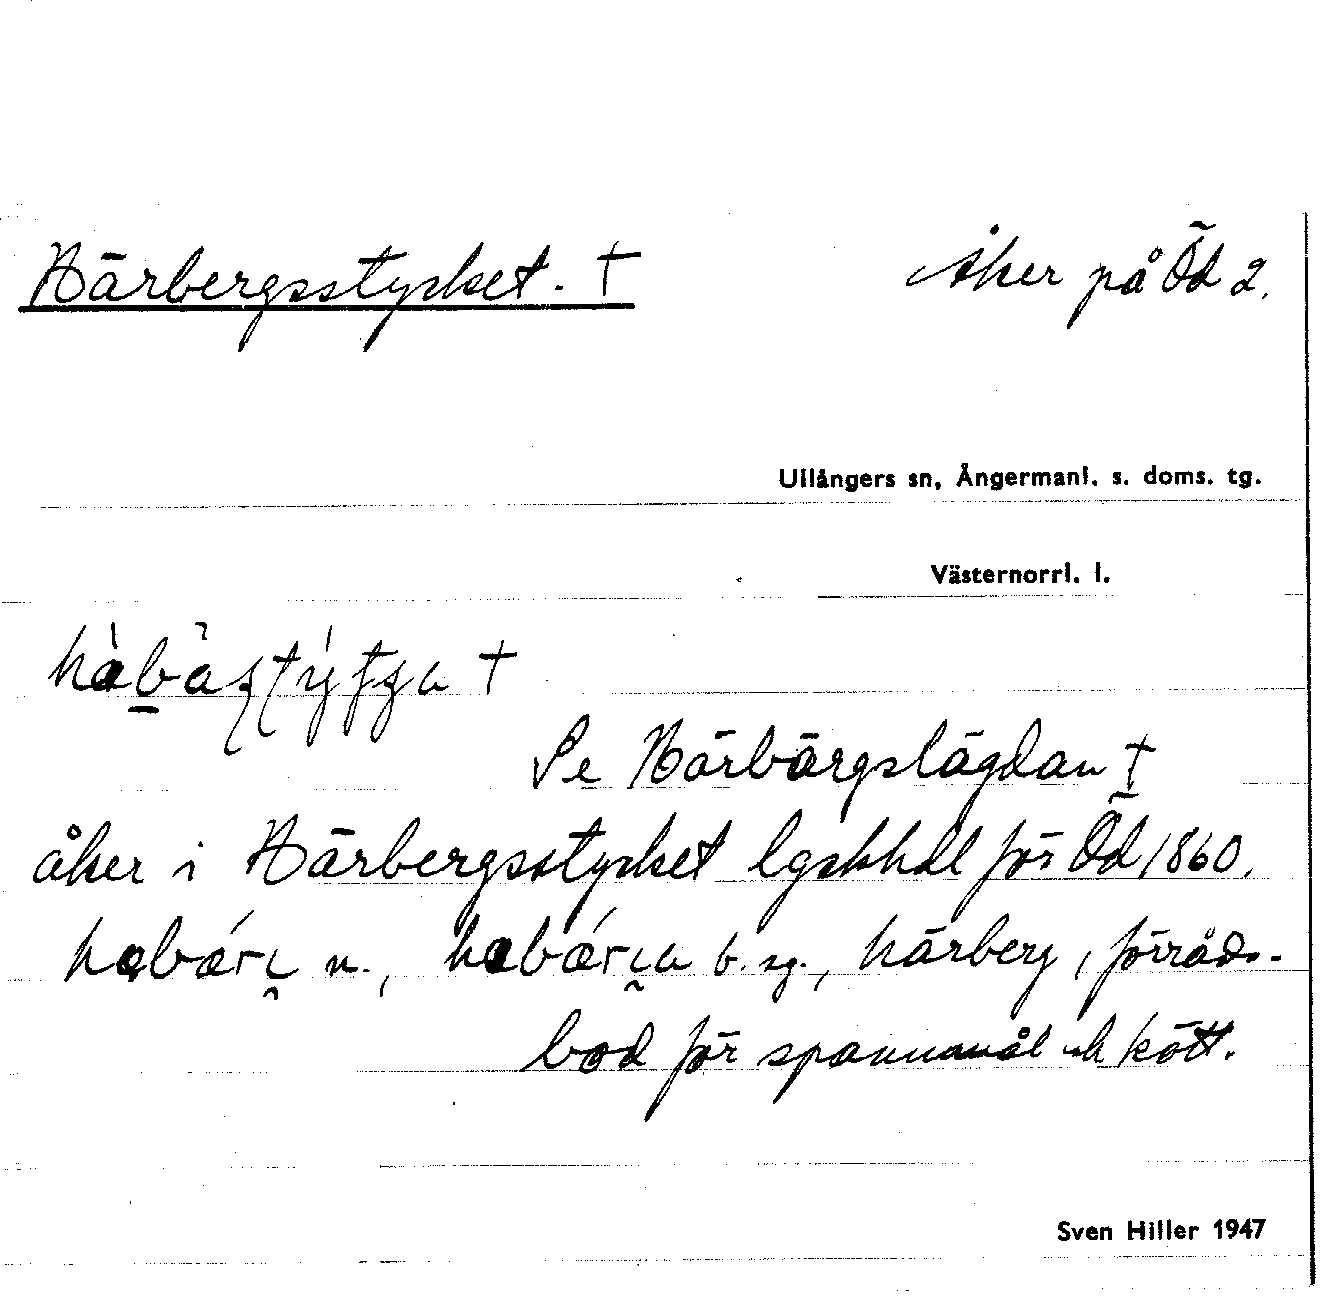 Härbergsstycket. † Åker på Öd 2.
Ullångers sn, Ångermanl. s. doms. tg.
Västernorrl. l.
†
Se Härbärgslägdan †
åker i Härbergsstycket lgskhdl för Öd 1860.
n., b. sg., härberg, förråds-
bod för spannmål och kött.
Sven Hiller 1947